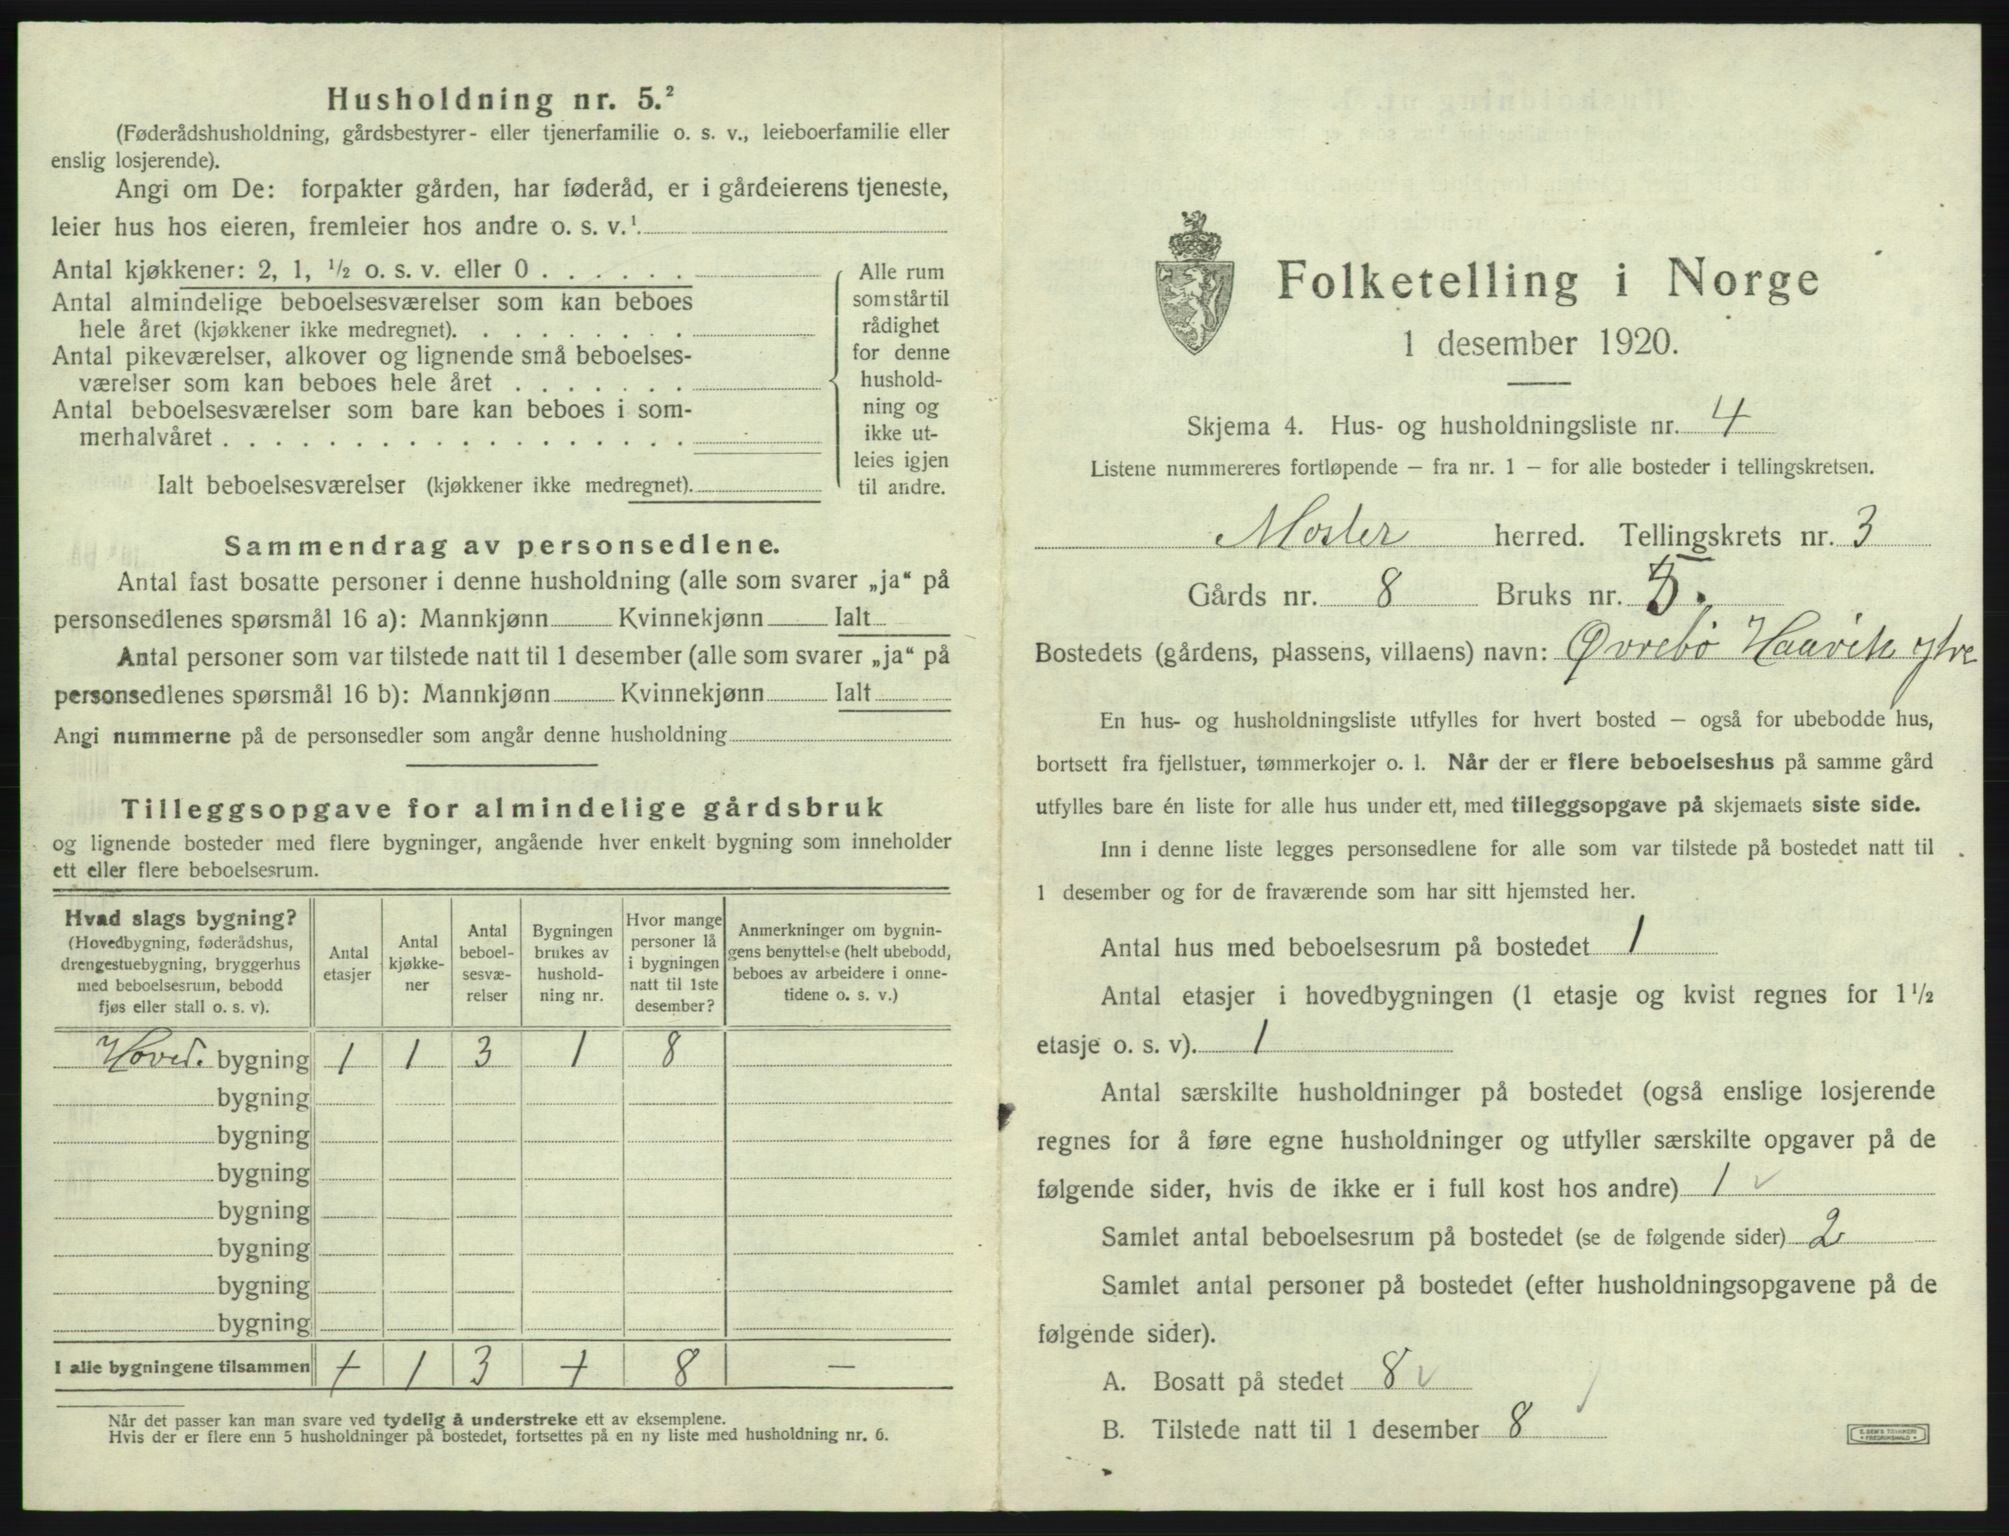 Husholdning nr. 5.²
(Føderådshusholdning, gårdsbestyrer- eller tjenerfamilie o. s. v., leieboerfamilie eller
enslig losjerende).
Angi om De: forpakter gården, har føderåd, er i gårdeierens tjeneste,
leier hus hos eieren, fremleier hos andre o. s. v.¹
Antal kjøkkener: 2, 1, ½ o. s. v. eller 0 . . . . . .
Antal almindelige beboelsesværelser som kan beboes
hele året (kjøkkener ikke medregnet). . . . . . . . .
Antal pikeværelser, alkover og lignende små beboelses-
værelser som kan beboes hele året . . . . . . .
Antal beboelsesværelser som bare kan beboes i som-
merhalvåret . . . . . . . . . . . . . . . . . .
Ialt beboelsesværelser (kjøkkener ikke medregnet).
Alle rum
som står til
rådighet
for denne
hushold-
ning og
ikke ut-
leies igjen
til andre.
Sammendrag av personsedlene.
Antal fast bosatte personer i denne husholdning (alle som svarer „ja“ på
personsedlenes spørsmål 16 a): Mannkjønn Kvinnekjønn Ialt
Antal personer som var tilstede natt til 1 desember (alle som svarer „ja“ på
personsedlenes spørsmål 16 b): Mannkjønn Kvinnekjønn Ialt
Angi nummerne på de personsedler som angår denne husholdning
Tilleggsopgave for almindelige gårdsbruk
og lignende bosteder med flere bygninger, angående hver enkelt bygning som inneholder
ett eller flere beboelsesrum.
Hvad slags bygning?
(Hovedbygning, føderådshus,
drengestuebygning, bryggerhus
med beboelsesrum, bebodd
fjøs eller stall o. s. v).
Antal
etasjer
Antal
kjøkke-
ner
Antal
beboel-
sesvæ-
relser
Bygningen
brukes av
hushold-
ning nr.
Hvor mange
personer lå
i bygningen
natt til 1ste
desember?
Anmerkninger om bygnin-
gens benyttelse (helt ubebodd,
beboes av arbeidere i onne-
tidene o. s. v.)
Hoved. bygning 1 1 3 1 8
bygning
bygning
bygning
bygning
bygning
bygning
bygning
I alle bygningene tilsammen + 1 3 + 8 —
Når det passer kan man svare ved tydelig å understreke ett av eksemplene.
Hvis der er flere enn 5 husholdninger på bostedet, fortsettes på en ny liste med husholdning nr. 6.
Folketelling i Norge
1 desember 1920.
Skjema 4. Hus- og husholdningsliste nr. 4
Listene nummereres fortløpende – fra nr. 1 – for alle bosteder i tellingskretsen.
Moster herred. Tellingskrets nr. 3
Gårds nr. 8 Bruks nr. 5.
Bostedets (gårdens, plassens, villaens) navn: Øvrebö Haavik ytre
En hus- og husholdningsliste utfylles for hvert bosted – også for ubebodde hus,
bortsett fra fjellstuer, tømmerkojer o. l. Når der er flere beboelseshus på samme gård
utfylles bare én liste for alle hus under ett, med tilleggsopgave på skjemaets siste side.
Inn i denne liste legges personsedlene for alle som var tilstede på bostedet natt til
1 desember og for de fraværende som har sitt hjemsted her.
Antal hus med beboelsesrum på bostedet 1
Antal etasjer i hovedbygningen (1 etasje og kvist regnes for 1½
etasje o. s. v). 1
Antal særskilte husholdninger på bostedet (også enslige losjerende
regnes for å føre egne husholdninger og utfyller særskilte opgaver på de
følgende sider, hvis de ikke er i full kost hos andre) 1 ✓
Samlet antal beboelsesrum på bostedet (se de følgende sider) 2
Samlet antal personer på bostedet (efter husholdningsopgavene på de
følgende sider).
A. Bosatt på stedet 8 ✓
B. Tilstede natt til 1 desember 8